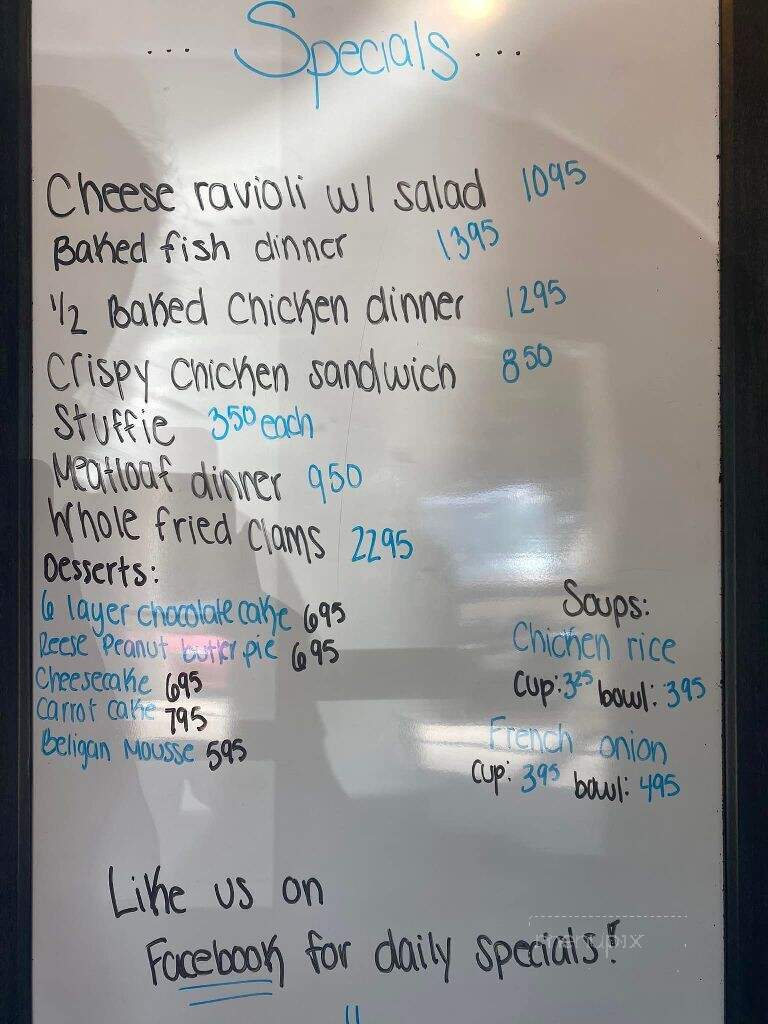 ... Specials ...
Cheese ravioli w/ salad 1095
Baked fish dinner 1395
1/2 Baked Chicken dinner 1295
Crispy Chicken sandwich 850
Stuffie 350 each
Meatloaf dinner 950
Whole fried clams 2295
Desserts:
6 layer chocolate cake 695
Reese Peanut butter pie 695
Cheesecake 695
Carrot cake 795
Beligan Mousse 595
Soups:
Chicken rice
cup: 325 bowl: 395
French onion
cup: 395 bowl: 495
Like us on
Facebook for daily specials!
menupix